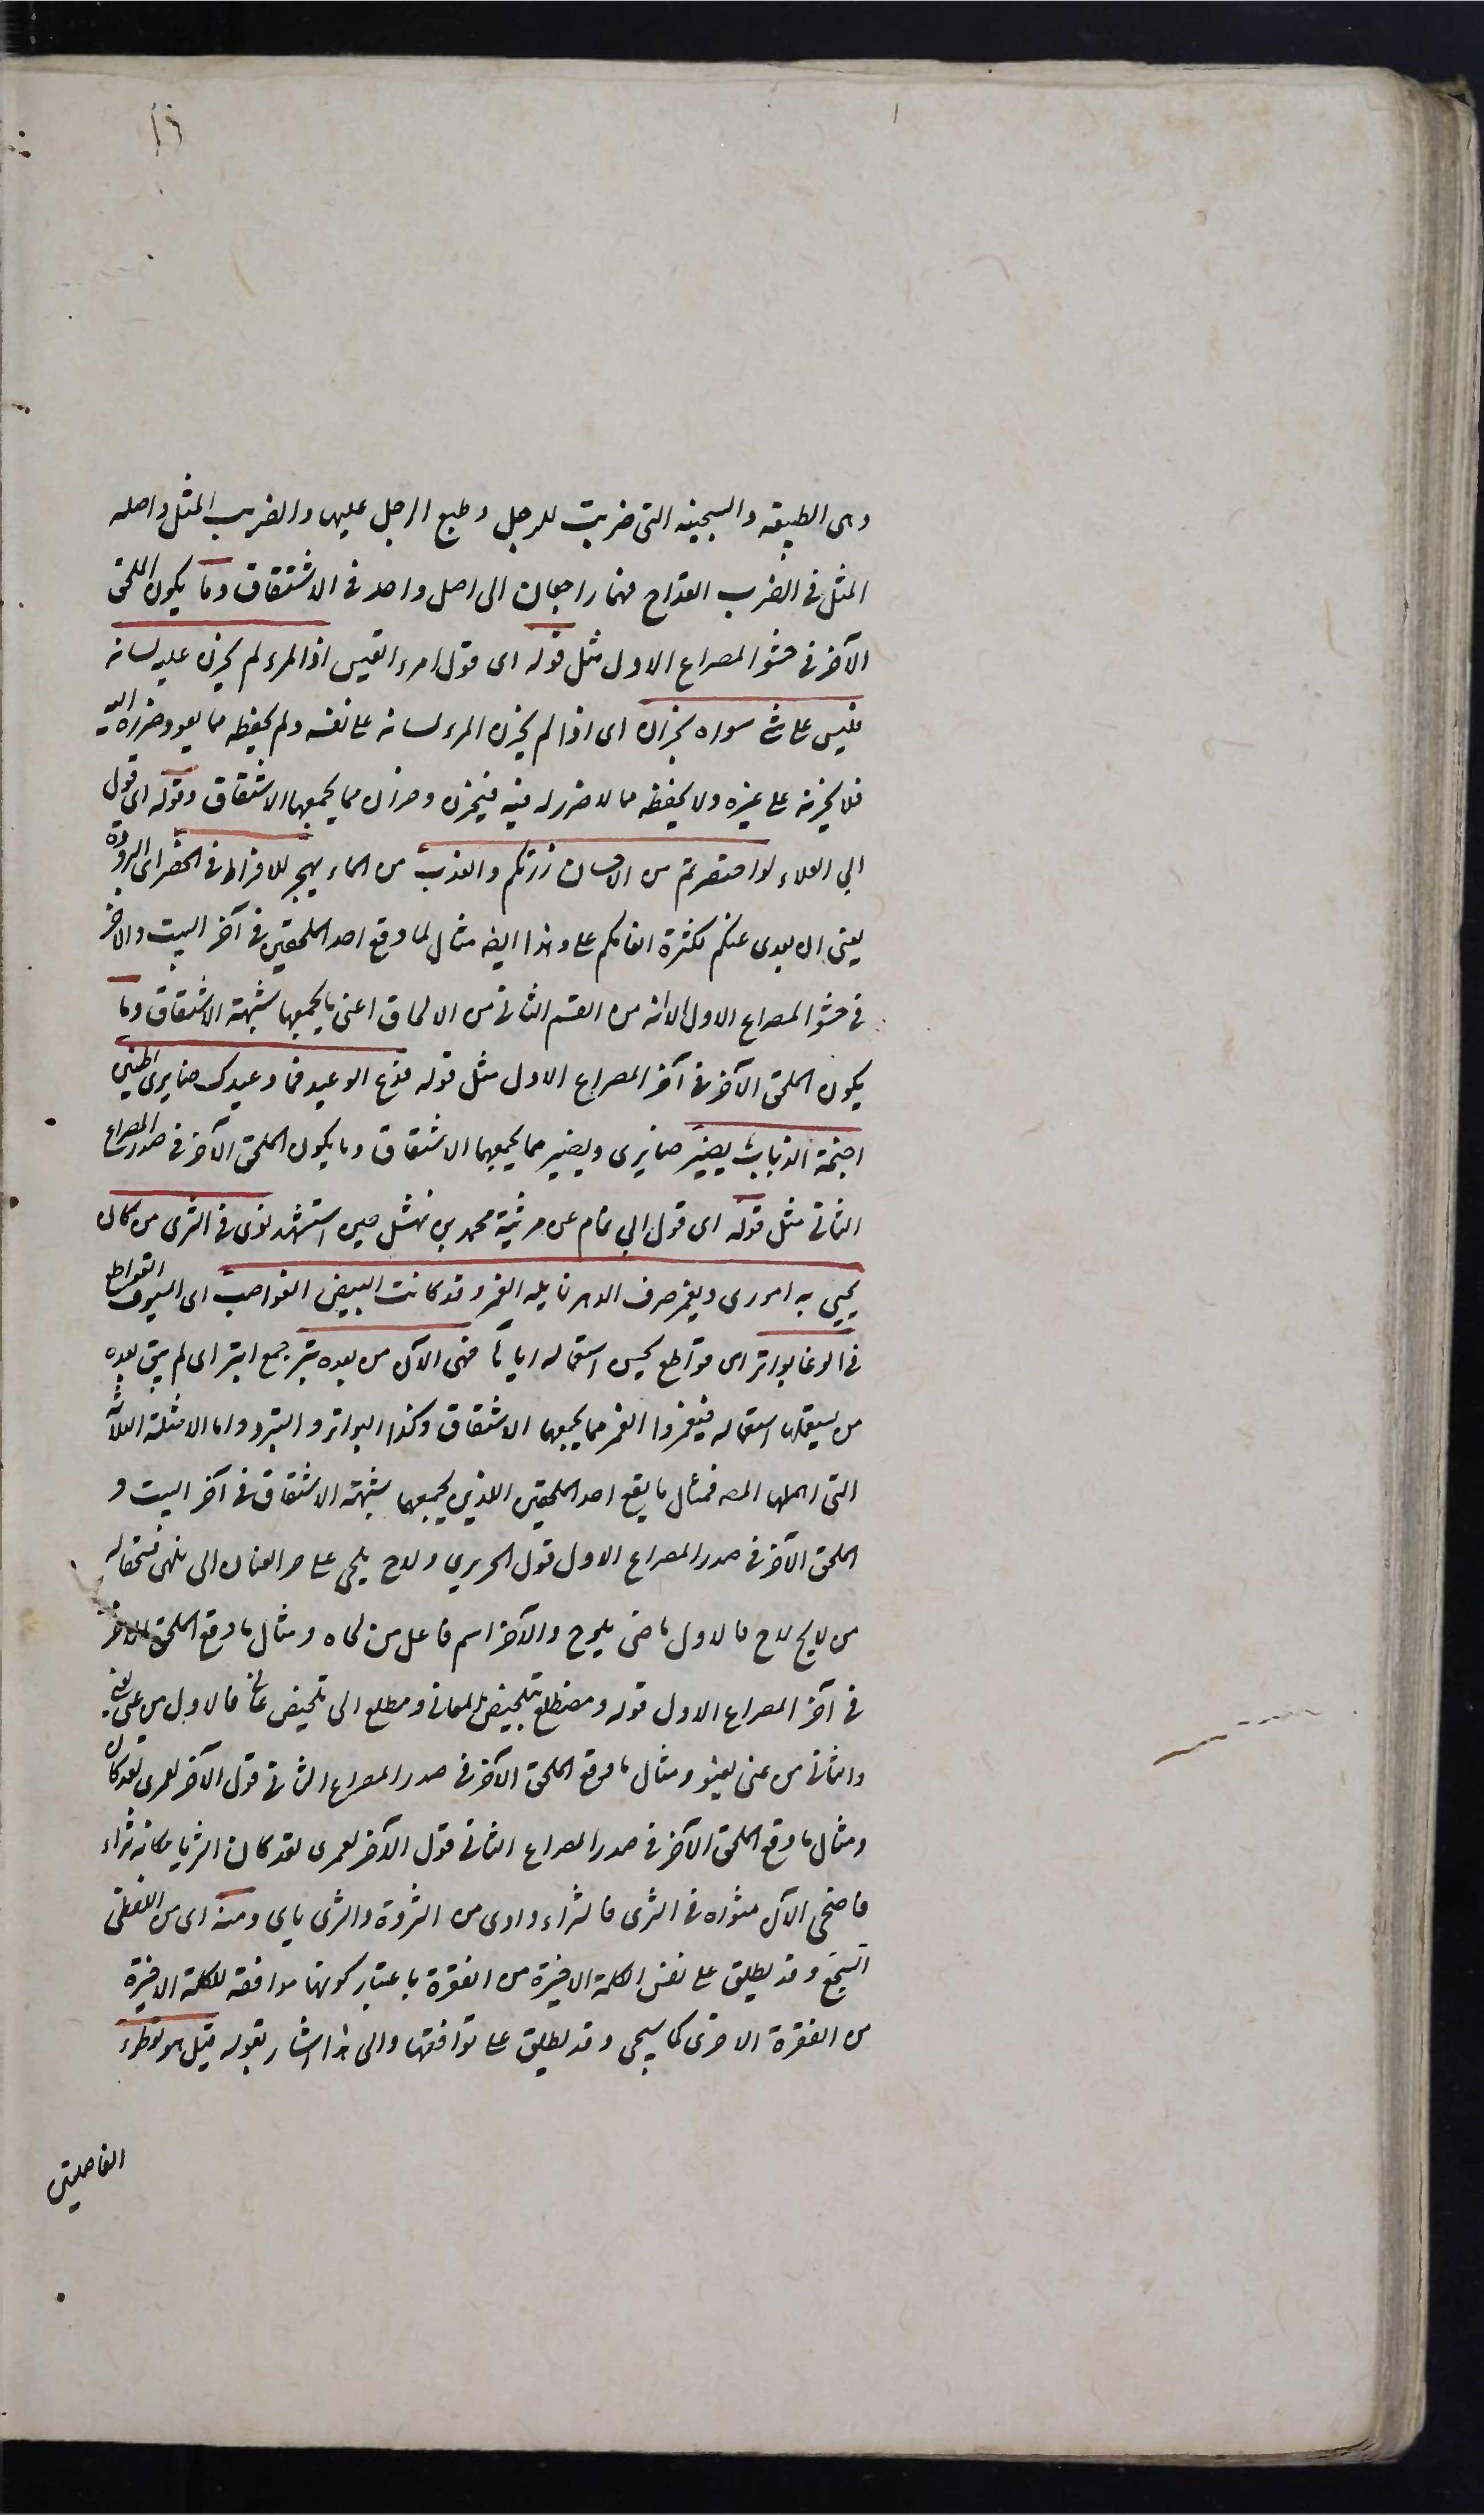 وهى الطبيعة والسجية التى ضربت للرجل وطبع الرجل عليها والضريب المثل واصله
المثل فى الضرب القداح فهما راجعان الى اصل واحد فى الاشتقاق وما يكون الملحق
الآخر فى حشو المصراع الاول مثل قوله اى قول امرء القيس اذا المرء لم يخزن عليه لسانه
فليس على شئ سواه بخزان اى اذا لم يخزن المرء لسانه على نفسه ولم يحفظه مما يعود ضرره اليه
فلا يخزنه على غيره ولا يحفظه مما لا ضرر له فيه فيخزن وخزان مما يجمعهما الاشتقاق وقوله اى قول
ابي العلاء لو اختصرتم من الاحسان زرتكم والعذب من الماء يهجر للافراط فى الخصر اى البرودة
يعنى ان بعدى عنكم لكثرة انعامكم على وهذا ايضا مثال لما وقع احد الملحقين فى آخر البيت والاخر
فى حشو المصراع الاول الا انه من القسم الثانى من الالحاق اعنى ما يجمعهما شبهة الاشتقاق وما
يكون الملحق الآخر فى آخر المصراع الاول مثل قوله فدع الوعيد فما وعيدك ضايرى اطنين
اجنحة الذباب يضير ضايرى ويضير مما يجمعهما الاشتقاق وما يكون الملحق الآخر فى صدر المصراع
الثانى مثل قوله اى قول ابي تمام عن مرثية محمد بن نهشل حين استشهد ثوى فى الثرى من كان
يحيى به الورى ويغمر صرف الدهر نايله الغمر وقد كانت البيض القواضب اى السيوف القواطع
فى الوغا بواتر اى قواطع بحسن استعماله اياها فهى الآن من بعده بتر جمع ابتر اى لم يبق بعده
من يستعملها استعماله فيغمر والغمر مما يجمعهما الاشتقاق وكذا البواتر والبتر واما الامثلة الثلاثة
التى اهملها المص فمثال ما يقع احد الملحقين اللذين يجمعهما شبهة الاشتقاق فى آخر البيت و
الملحق الآخر فى صدر المصراع الاول قول الحريري ولاح يلحى على جر العنان الى ملهى فسحقا له
من لايح لاح فالاول ماضى يلوح والآخر اسم فاعل من لحاه ومثال ما وقع الملحق الاخر
فى آخر المصراع الاول قوله ومضطلع بتلخيص المعانى ومطلع الى تلخيص عانى فالاول من عنى يعنى
والثانى من عنى يعنو ومثال ما وقع الملحق الآخر فى صدر المصراع الثانى قول الآخر لعمرى لقد كان
ومثال ما وقع الملحق الآخر فى صدر المصراع الثانى قول الآخر لعمرى لقد كان الثريا مكانه ثراء
فاضحى الآن مثواه فى الثرى فالثراء واوى من الثروة والثرى يايى ومنه اى من اللفظى
السجع وقد يطلق على نفس الكلمة الاخيرة من الفقرة باعتبار كونها موافقة للكلمة الاخيرة
من الفقرة الاخرى كما سيجى وقد يطلق على توافقها والى هذا اشار بقوله قيل هو تواطء
الفاصلتين